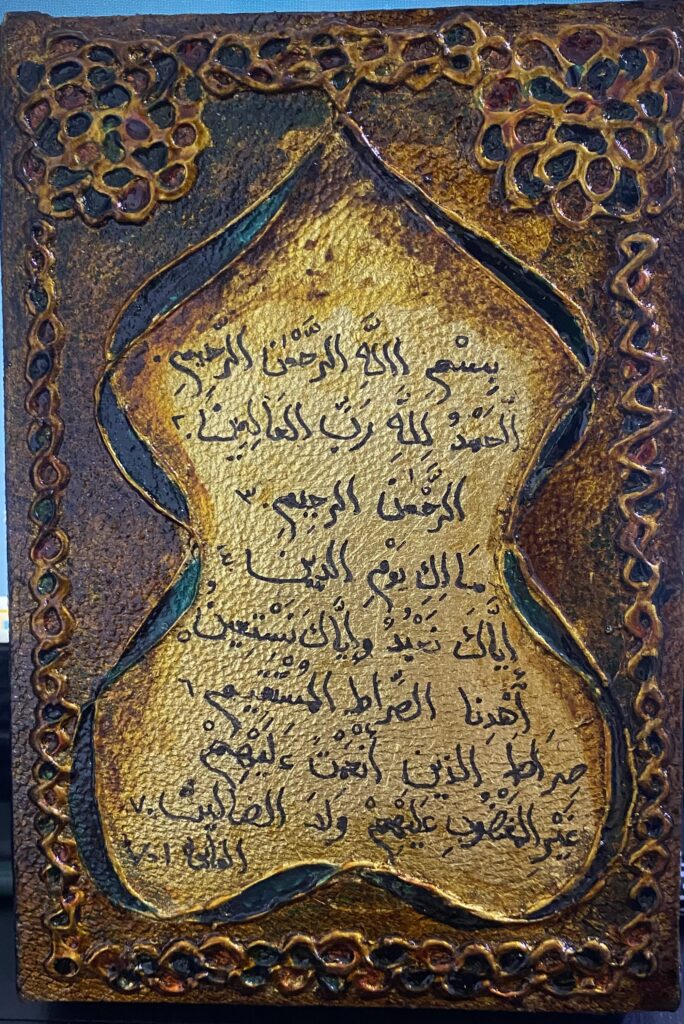 بِسْمِ اللَّهِ الرَّحْمٰنِ الرَّحِيمِ ١
الْحَمْدُ لِلَّهِ رَبِّ العَالَمِينَ ٢
الرَّحْمٰنِ الرحِيمِ ٣
مَالِكِ يَوْمِ الدِينِ ٤
إِيَّاكَ نَعْبُدُ وإِيَّاكَ نَسْتَعِينُ ٥
أَهْدِنَا الصِّرَاطَ الْمُسْتَقِيمَ ٦
صِرَاطَ الذينَ أَنْعَمْتَ عَلَيْهِمْ
غَيْرِ المَغْضُوبِ عَلَيْهِمْ وَلَا الضالِّينَ ٧